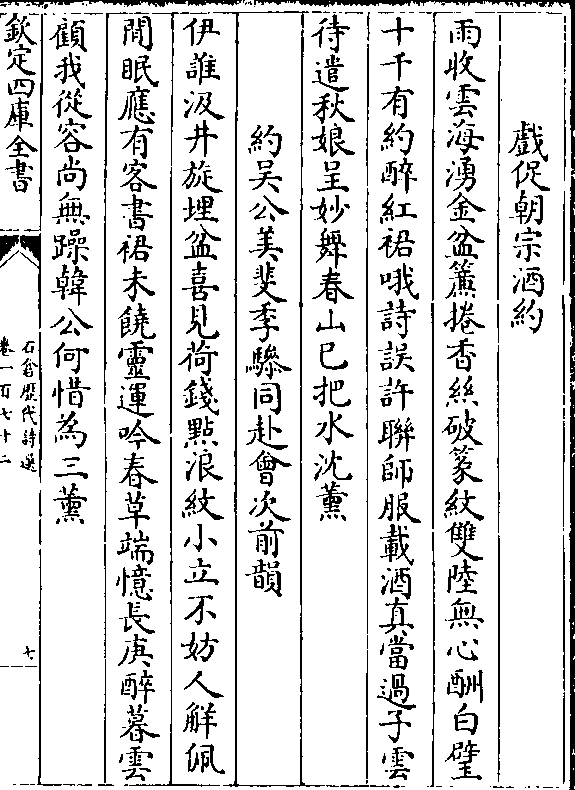 戲促朝宗酒約
雨收雲海湧金盆簾捲香絲破篆紋雙陸無心酬白璧
十千有約醉紅裙哦詩誤許聯師服載酒真當過子雲
待遣秋娘呈妙舞春山已把水沈薰
約吳公美斐季驂同赴㑹次前韻
伊誰汲井旋埋盆喜見荷錢點浪紋小立不妨人觧佩
閒眠應有客書裙未饒靈運吟春草端憶長庚醉暮雲
顧我從容尚無躁韓公何惜為三薰
欽定四庫全書
石倉歷代詩選
卷一百七十二
七